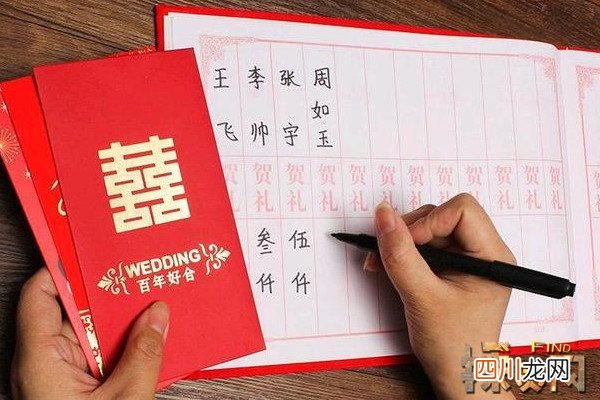 囍
WEDDING
百年好合
周如玉
张宇
李帅
王飞
贺礼
贺礼
贺礼
贺礼
贺礼
贺礼
贺礼
贺礼
贺礼
贺礼
贺礼
贺礼
伍仟
叁仟
FIND
四川龙网